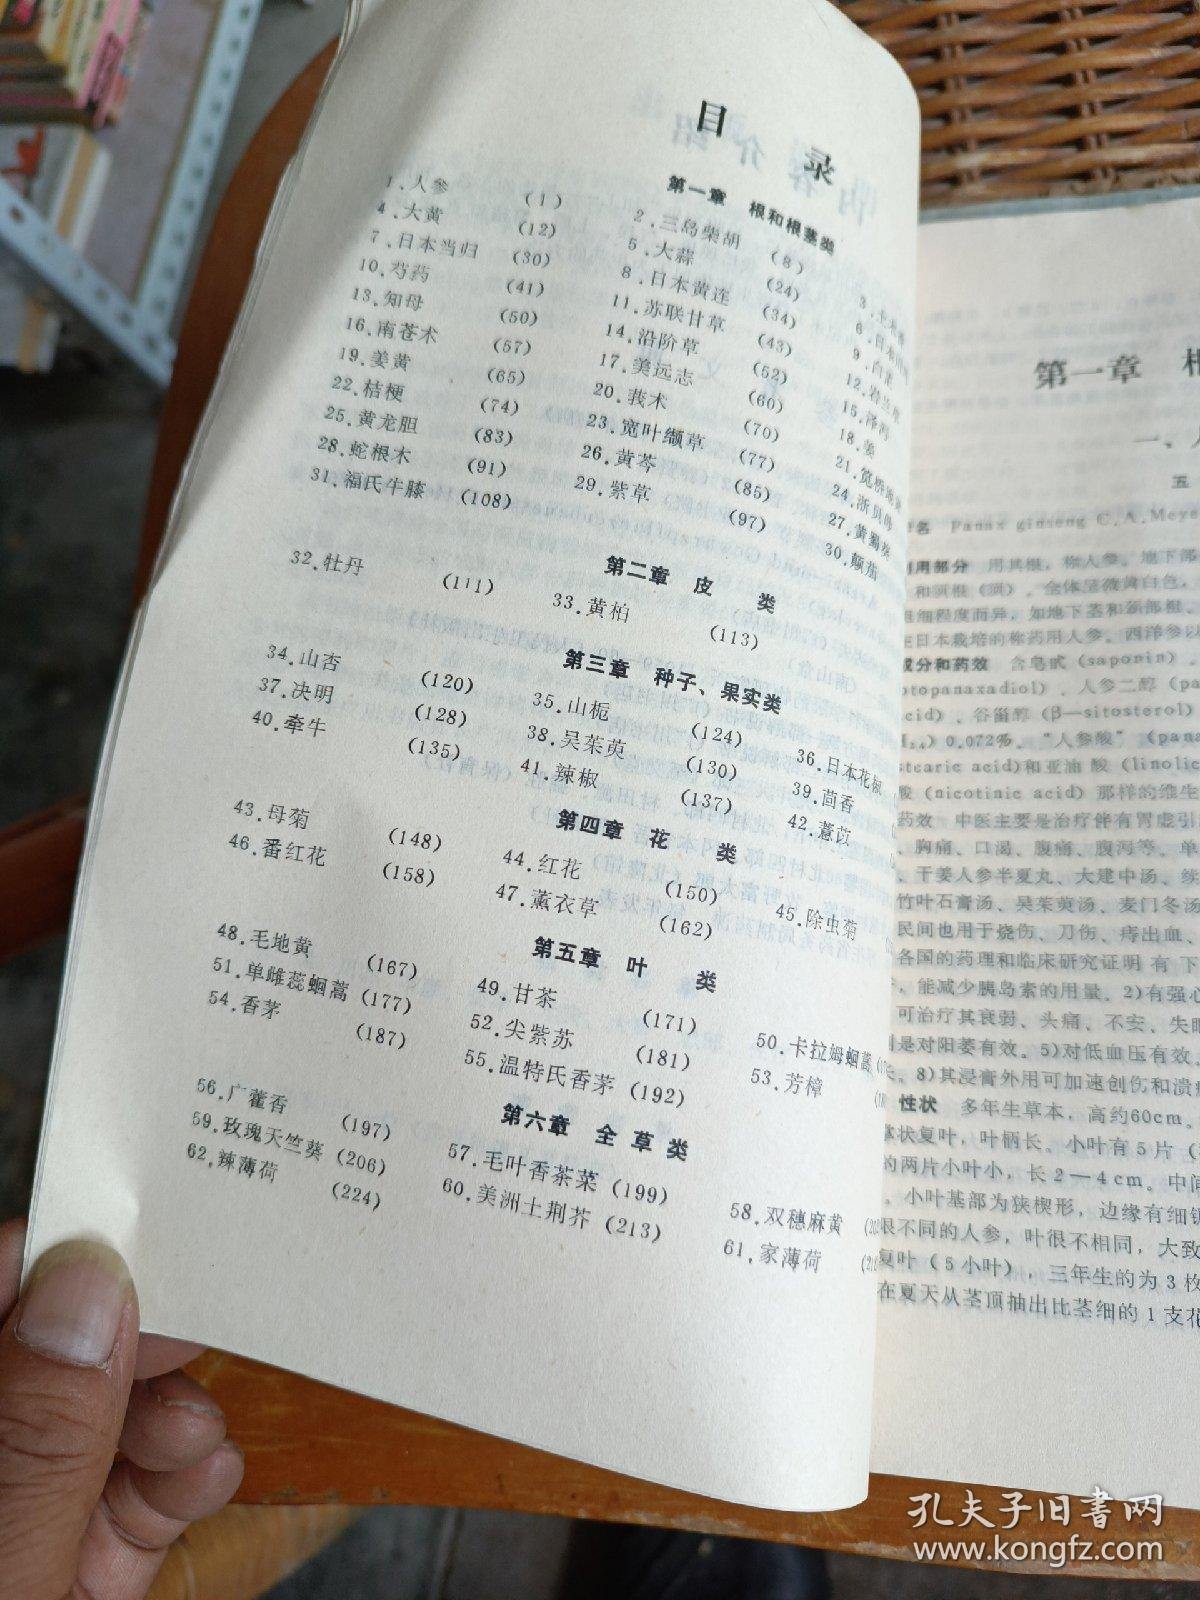 目 录
第一章 根和根茎类
1.人参 (1) 2.三岛柴胡 (8)
4.大黄 (12) 5.大蒜 (24)
7.日本当归 (30) 8.日本黄连 (34) 9.白芷
10.芍药 (41) 11.苏联甘草 (43)
13.知母 (50) 14.沿阶草 (52) 15.泽泻
16.南苍术 (57) 17.美远志 (60) 18.姜
19.姜黄 (65) 20.莪术 (70)
22.桔梗 (74) 23.宽叶缬草 (77) 24.浙贝母
25.黄龙胆 (83) 26.黄芩 (85) 27.黄蜀葵
28.蛇根木 (91) 29.紫草 (97) 30.颠茄
31.福氏牛膝 (108)
第二章 皮 类
32.牡丹 (111) 33.黄柏 (113)
第三章 种子、果实类
34.山杏 (120) 35.山栀 (124) 36.日本花椒
37.决明 (128) 38.吴茱萸 (130) 39.茴香
40.牵牛 (135) 41.辣椒 (137) 42.薏苡
第四章 花 类
43.母菊 (148) 44.红花 (150) 45.除虫菊
46.番红花 (158) 47.薰衣草 (162)
第五章 叶 类
48.毛地黄 (167) 49.甘茶 (171) 50.卡拉姆蛔蒿
51.单雌蕊蛔蒿 (177) 52.尖紫苏 (181) 53.芳樟
54.香茅 (187) 55.温特氏香茅 (192)
第六章 全 草 类
56.广藿香 (197) 57.毛叶香茶菜 (199) 58.双穗麻黄
59.玫瑰天竺葵 (206) 60.美洲土荆芥 (213) 61.家薄荷
62.辣薄荷 (224)
第一章
一、
五
名 Panax ginseng C.A.Meye
利用部分 用其根，称人参。地下部
和须根（须）。全体呈微黄白色，
粗细程度而异，如地下茎和颈部根、
在日本栽培的称药用人参。西洋参以
成分和药效 含皂甙(saponin)、
otopanaxadiol)、人参二醇(pa
cid)、谷甾醇(β—sitosterol)
)0.072%、“人参酸”(pana
stearic acid)和亚油酸(linolic
酸(nicotinic acid)那样的维生
药效 中医主要是治疗伴有胃虚引
、胸痛、口渴、腹痛、腹泻等、单
、干姜人参半夏丸、大建中汤、续
竹叶石膏汤、吴茱萸汤、麦门冬汤
民间也用于烧伤、刀伤、痔出血、
各国的药理和临床研究证明有下
，能减少胰岛素的用量。2)有强心
可治疗其衰弱、头痛、不安、失眠
是对阳萎有效。5)对低血压有效。
8)其浸膏外用可加速创伤和溃疡
性状 多年生草本，高约60cm。
掌状复叶，叶柄长。小叶有5片
的两片小叶小，长2—4cm。中间
，小叶基部为狭楔形，边缘有细锯
很不同的人参，叶很不相同，大致
复叶（5小叶），三年生的为3枚
在夏天从茎顶抽出比茎细的1支花
孔夫子旧书网
www.kongfz.com